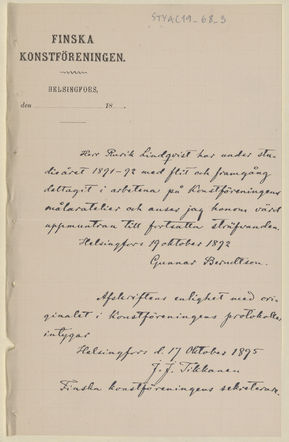 STYAC19-68-3
FINSKA
KONSTFÖRENINGEN.
HELSINGFORS,
den 18
Herr Rurik Lindqvist har under stu-
dieåret 1891-92 med flit och framgång
deltagit i arbetena på Konstföreningens
målaratelier och anses jag honom värd
uppmuntran till fortsatta sträfvanden.
Helsingfors 19 oktober 1892
Gunnar Berndtson.
Afskriftens enlighet med ori-
ginalet i Konstföreningens protokoller
intygar
Helsingfors d. 17 Oktober 1895
J. J. Tikkanen
Finska Konstföreningens sekreterare.